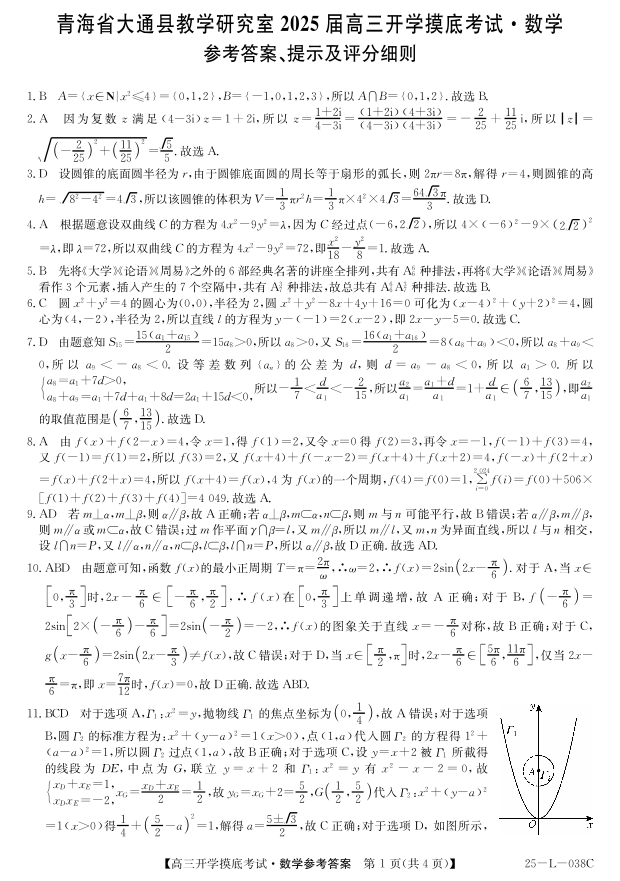 青海省大通县教学研究室 2025 届高三开学摸底考试·数学
参考答案、提示及评分细则
1. B　A={x∈N|x²≤4}={0,1,2},B={-1,0,1,2,3},所以 A∩B={0,1,2}. 故选 B.
2. A　因为复数 z 满足(4-3i)z=1+2i,所以 z=\frac{1+2i}{4-3i}=\frac{(1+2i)(4+3i)}{(4-3i)(4+3i)}=-\frac{2}{25}+\frac{11}{25}i,所以|z|=
\sqrt{(-\frac{2}{25})^2+(\frac{11}{25})^2}=\frac{\sqrt{5}}{5}. 故选 A.
3. D　设圆锥的底面圆半径为 r,由于圆锥底面圆的周长等于扇形的弧长,则 2πr=8π,解得 r=4,则圆锥的高
h=\sqrt{8²-4²}=4\sqrt{3},所以该圆锥的体积为 V=\frac{1}{3}πr²h=\frac{1}{3}π×4²×4\sqrt{3}=\frac{64\sqrt{3}π}{3}. 故选 D.
4. A　根据题意设双曲线 C 的方程为 4x²-9y²=λ,因为 C 经过点(-6,2\sqrt{2}),所以 4×(-6)²-9×(2\sqrt{2})²
=λ,即 λ=72,所以双曲线 C 的方程为 4x²-9y²=72,即\frac{x²}{18}-\frac{y²}{8}=1. 故选 A.
5. B　先将《大学》《论语》《周易》之外的 6 部经典名著的讲座全排列,共有 A_6^6 种排法,再将《大学》《论语》《周易》
看作 3 个元素,插入产生的 7 个空隔中,共有 A_7^3 种排法,故总共有 A_6^6A_7^3 种排法. 故选 B.
6. C　圆 x²+y²=4 的圆心为(0,0),半径为 2,圆 x²+y²-8x+4y+16=0 可化为(x-4)²+(y+2)²=4,圆
心为(4,-2),半径为 2,所以直线 l 的方程为 y-(-1)=2(x-2),即 2x-y-5=0. 故选 C.
7. D　由题意知 S₁₅=\frac{15(a₁+a₁₅)}{2}=15a₈>0,所以 a₈>0,又 S₁₆=\frac{16(a₁+a₁₆)}{2}=8(a₈+a₉)<0,所以 a₈+a₉<
0,所以 a₉<-a₈<0. 设等差数列{aₙ}的公差为 d,则 d=a₉-a₈<0,所以 a₁>0. 所以
{a₈=a₁+7d>0, a₈+a₉=a₁+7d+a₁+8d=2a₁+15d<0, 所以-\frac{1}{7}<\frac{d}{a₁}<-\frac{2}{15},所以\frac{a₂}{a₁}=\frac{a₁+d}{a₁}=1+\frac{d}{a₁}∈(\frac{6}{7},\frac{13}{15}),即\frac{a₂}{a₁}
的取值范围是(\frac{6}{7},\frac{13}{15}). 故选 D.
8. A　由 f(x)+f(2-x)=4,令 x=1,得 f(1)=2,又令 x=0 得 f(2)=3,再令 x=-1,f(-1)+f(3)=4,
又 f(-1)=f(1)=2,所以 f(3)=2,又 f(x+4)+f(-x-2)=f(x+4)+f(x+2)=4,f(-x)+f(2+x)
=f(x)+f(2+x)=4,所以 f(x+4)=f(x),4 为 f(x)的一个周期,f(4)=f(0)=1,\sum_{i=0}^{2 024}f(i)=f(0)+506×
[f(1)+f(2)+f(3)+f(4)]=4 049. 故选 A.
9. AD　若 m⊥α,m⊥β,则 α∥β,故 A 正确;若 α⊥β,m⊂α,n⊂β,则 m 与 n 可能平行,故 B 错误;若 α∥β,m∥β,
则 m∥α 或 m⊂α,故 C 错误;过 m 作平面 γ∩β=l,又 m∥β,所以 m∥l,又 m,n 为异面直线,所以 l 与 n 相交,
设 l∩n=P,又 l∥α,n∥α,n⊂β,l⊂β,l∩n=P,所以 α∥β,故 D 正确. 故选 AD.
10. ABD　由题意可知,函数 f(x)的最小正周期 T=π=\frac{2π}{ω},∴ω=2,∴f(x)=2sin(2x-\frac{π}{6}). 对于 A,当 x∈
[0,\frac{π}{3}]时,2x-\frac{π}{6}∈[-\frac{π}{6},\frac{π}{2}],∴f(x)在[0,\frac{π}{3}]上单调递增,故 A 正确;对于 B,f(-\frac{π}{6})=
2sin[2×(-\frac{π}{6})-\frac{π}{6}]=2sin(-\frac{π}{2})=-2,∴f(x)的图象关于直线 x=-\frac{π}{6}对称,故 B 正确;对于 C,
g(x-\frac{π}{6})=2sin(2x-\frac{π}{3})≠f(x),故 C 错误;对于 D,当 x∈[\frac{π}{2},π]时,2x-\frac{π}{6}∈[\frac{5π}{6},\frac{11π}{6}],仅当 2x-
\frac{π}{6}=π,即 x=\frac{7π}{12}时,f(x)=0,故 D 正确. 故选 ABD.
11. BCD　对于选项 A,Γ₁:x²=y,抛物线 Γ₁ 的焦点坐标为(0,\frac{1}{4}),故 A 错误;对于选项
B,圆 Γ₂ 的标准方程为:x²+(y-a)²=1(x>0),点(1,a)代入圆 Γ₂ 的方程得 1²+
(a-a)²=1,所以圆 Γ₂ 过点(1,a),故 B 正确;对于选项 C,设 y=x+2 被 Γ₁ 所截得
的线段为 DE,中点为 G,联立 y=x+2 和 Γ₁:x²=y 有 x²-x-2=0,故
{x_D+x_E=1, x_Dx_E=-2, x_G=\frac{x_D+x_E}{2}=\frac{1}{2},故 y_G=x_G+2=\frac{5}{2},G(\frac{1}{2},\frac{5}{2})代入 Γ₂:x²+(y-a)²
=1(x>0)得\frac{1}{4}+(\frac{5}{2}-a)²=1,解得 a=\frac{5±\sqrt{3}}{2},故 C 正确;对于选项 D,如图所示,
y
Γ₁
A
Γ₂
O
x
【高三开学摸底考试·数学参考答案　第 1 页(共 4 页)】
25-L-038C